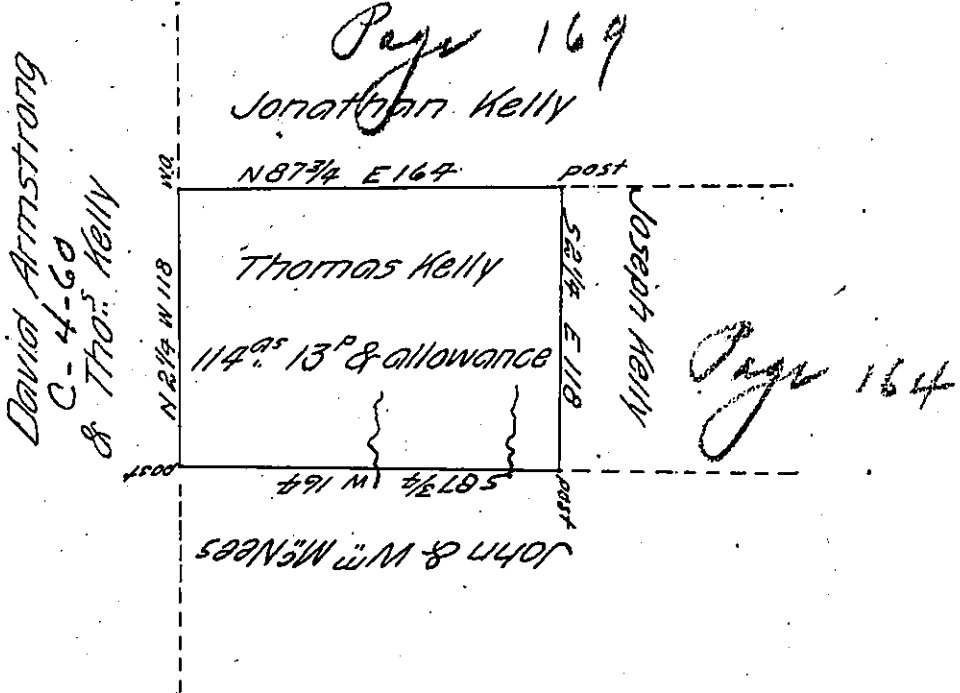 Page 169
Jonathan Kelly
David Armstrong
C-4-60
& Tho.s Kelly
W.O.
N 87 3/4 E 164
post
N 2 1/4 W 118
Thomas Kelly
114 as. 13 P & allowance
S 2 1/4 E 118
Joseph Kelly
Page 164
post
S 87 3/4 W 164
post
John & Wm McNees